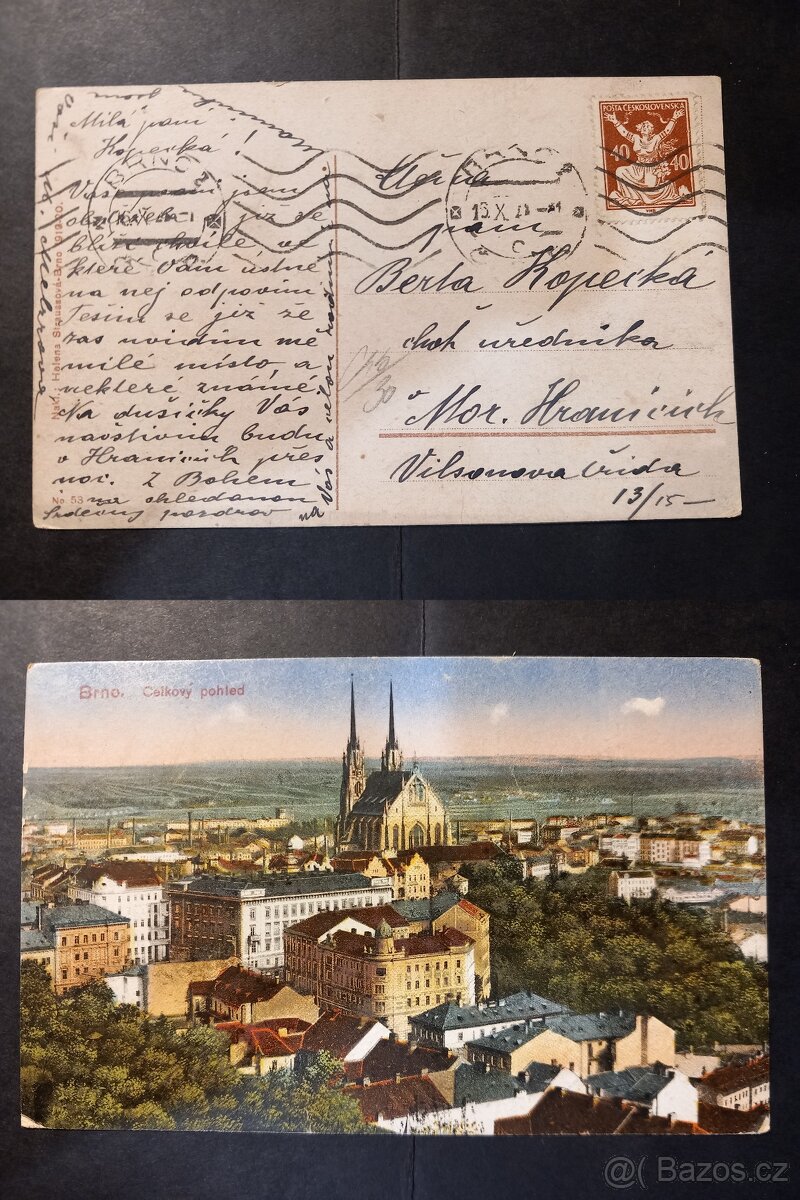 Milá paní
Kopecká!
Vaše psaní jsem
obdržela již se
blíží chvíle ve
které Vám ústně
na nej odpovím
Tesim se již že
zas uvidím mé
milé místo a
nekteré známé
Na dušičky Vás
navštívím budu
v Hranicích přes
noc. Z Bohem
na shledanou
Srdečný pozdrov na
Vás a celou rodinu
Vaši
Nakl.: Helena Straussová-Brno 1919/20.
No 53
BRNO
POŠTA ČESKOSLOVENSKÁ
40 40
Ctěná
paní
Berta Kopecká
choť úředníka
v Mor. Hranicích
Vilsonova třída
13/15-
Brno. Celkový pohled
@( Bazos.cz